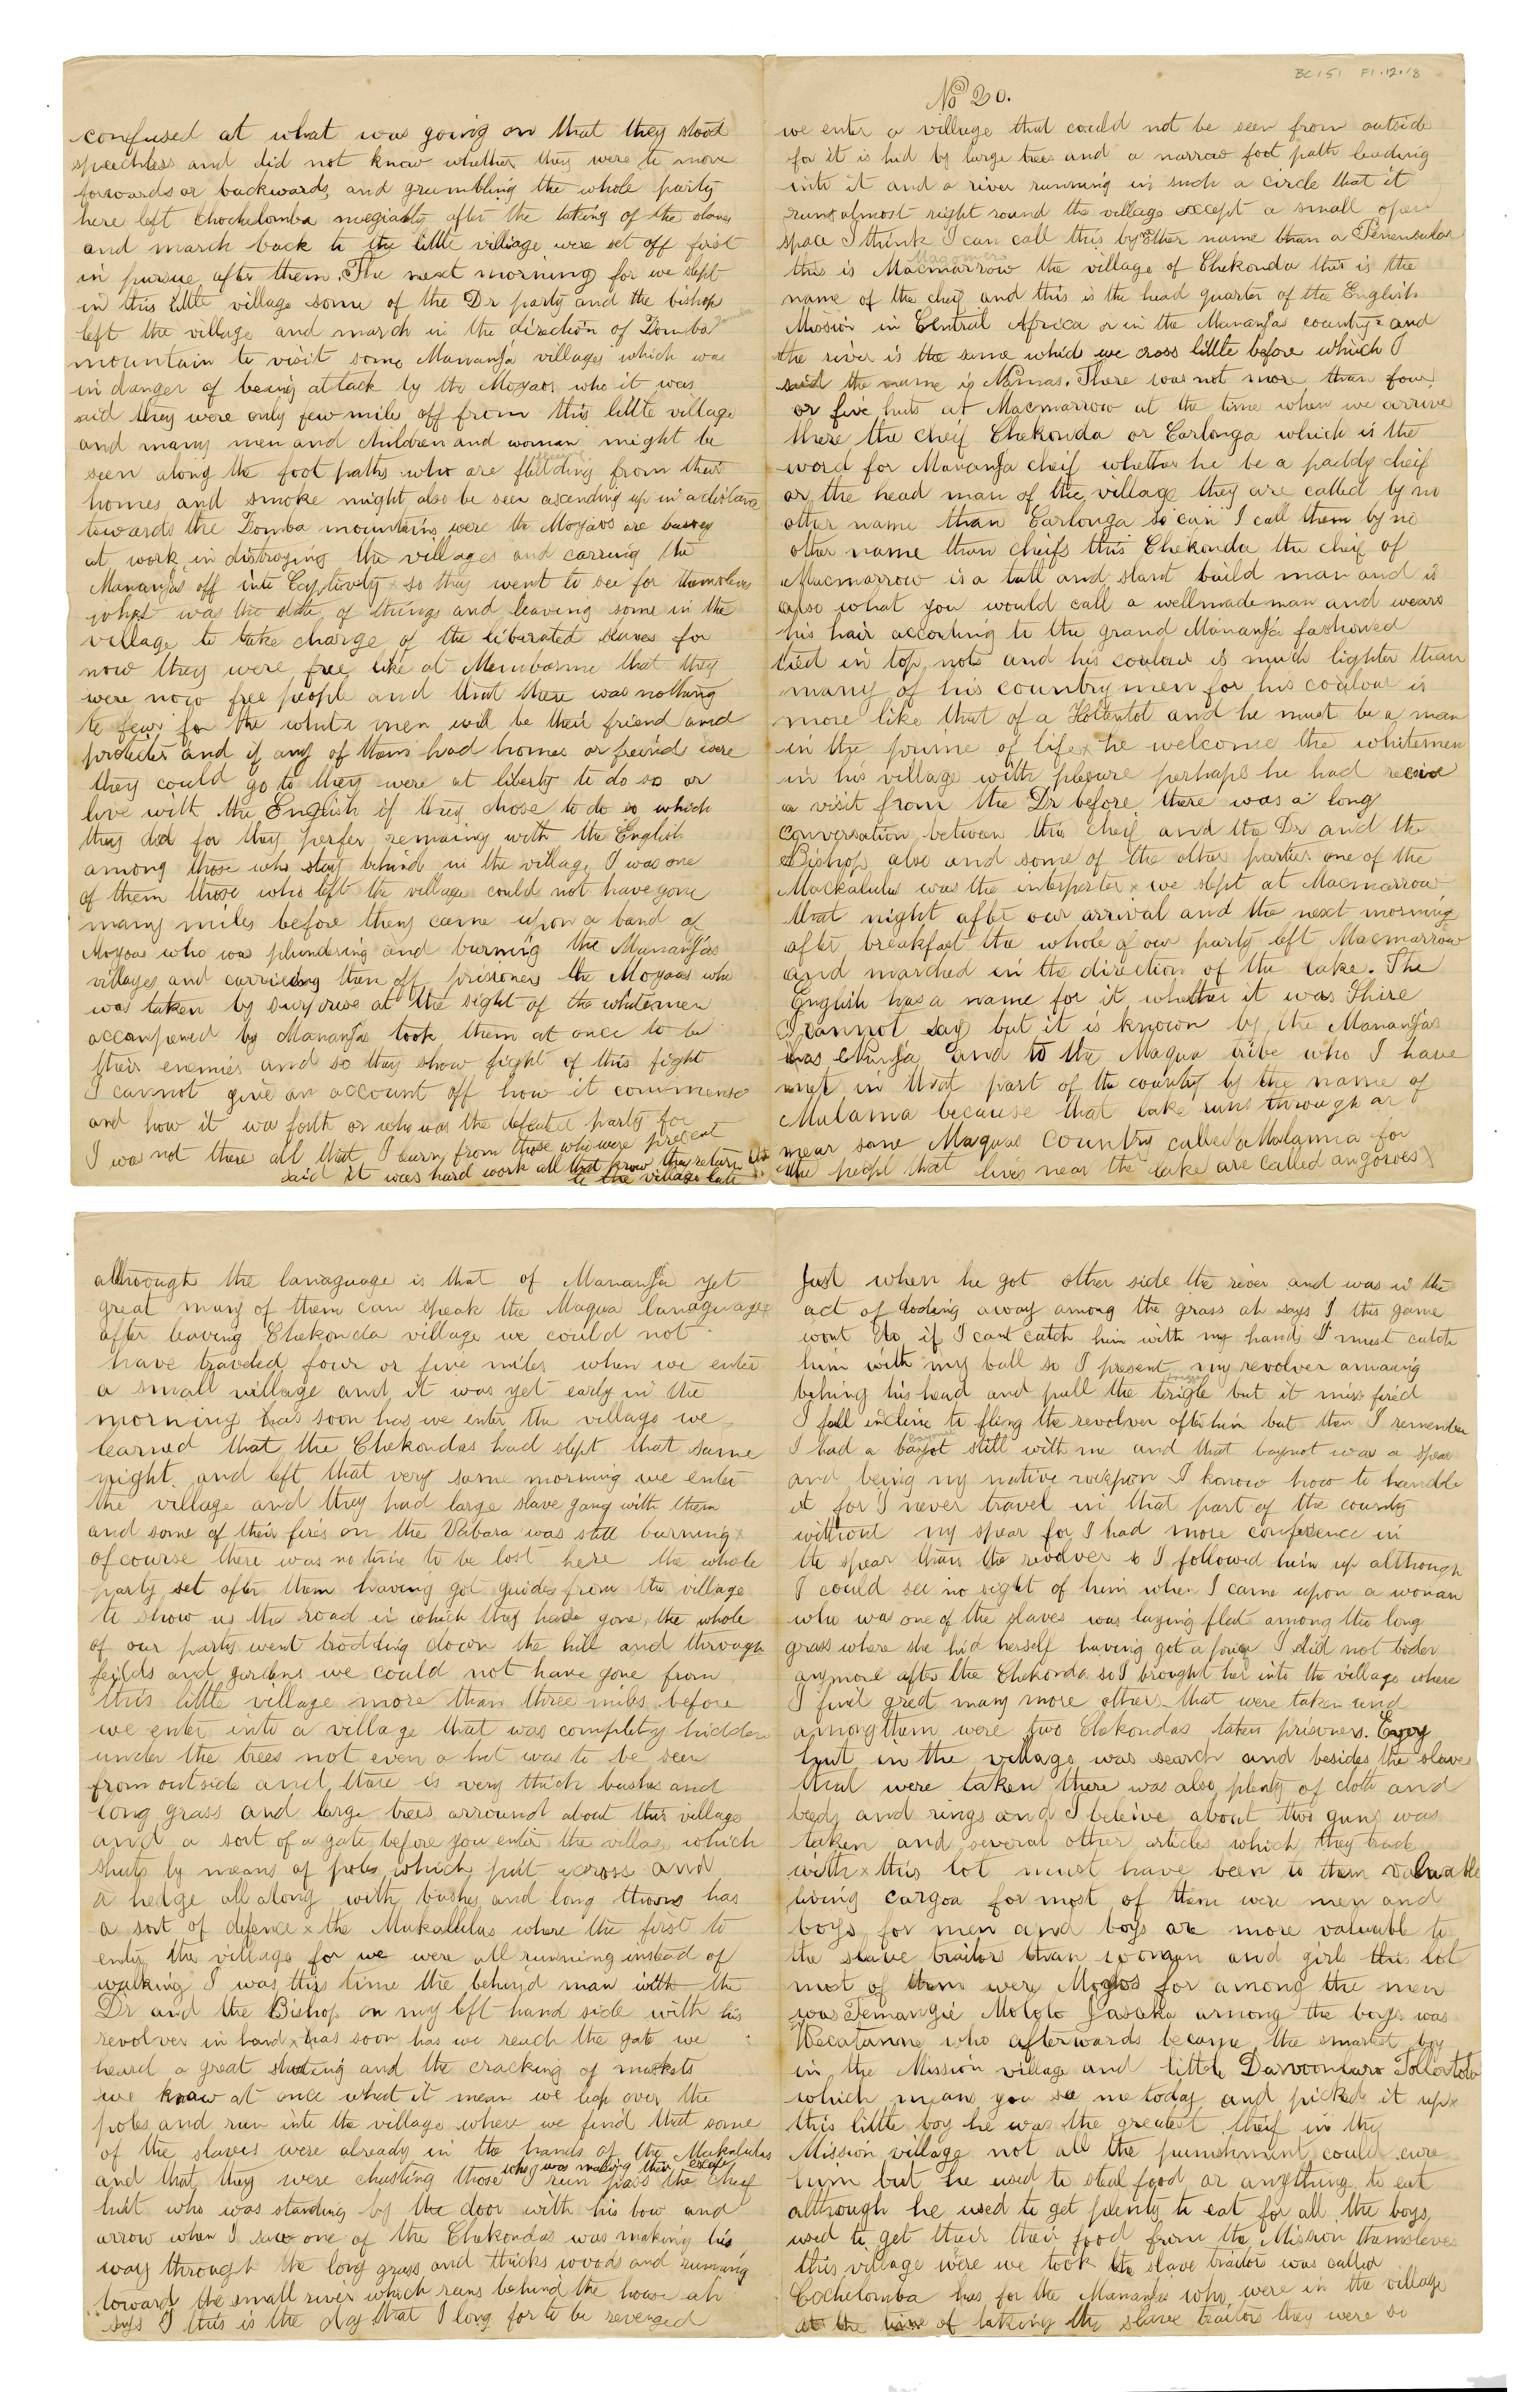 confused at what was going on that they stood
speechless and did not know whether they were to move
forwards or backwards, and grumbling the whole party
here left Chockelomba after the taking of the slaves
and march back to the little village were set off first
in pursue after them. The next morning for we slept
in this little village some of the Dr party and the bishop
left the village and march in the direction of Domba Zomba
mountain to visit some Mananja villages which was
in danger of being attack by the Moyaos who it was
said they were only few mile off from this little village
and many men and children and woman might be
seen along the foot paths who are from their
homes and smoke might also be seen ascending up in a distance
towards the Domba mountains were the Moyaos are bussey
at work in distroying the villages and carring the
Mananja's off into Cap,tivety x so they went to see for themsleves
what was the state of things and leaving some in the
village to take charge of the liberated slaves for
now they were free like at Membarme that they
were now free people and that there was nothing
to fear for the white men will be their friend and
protecter and if any of them had homes or freind were
they could go to they were at liberty to do so or
live with the English if they chose to do so which
they did for they perfer remaing with the English
among those who stay behind in the village I was one
of them those who left the village could not have gone
many miles before they came upon a band of
Moyoa who was plundering and burning the Mananja's
villages and carrieing them off prisioners the Moyaos who
was taken by surprise at the sight of the whitemen
accompened by Mananja took them at once to be
their enemies and so they show fight of this fight
I cannot give an account off how it commense
and how it was foth or who was the defeated party for
I was not there all that I learn from those who were present
said it was hard work all that know they return
to the village late
BC 151 F1.12.18
No 20.
we enter a village that could not be seen from outside
for it is hid by large trees and a narrow foot path leading
into it and a river running in such a circle that it
runs almost right round the village except a small open
space I think I can call this by other name than a Penensular
Magomero
this is Macmarrow the village of Chekonda this is the
name of the cheif and this is the head quarter of the English
Mission in Central Africa or in the Mananja's country and
the river is the same which we cross little before which I
said the name is Namas. There was not more than four
or five huts at Macmarrow at the time when we arrive
there the cheif Chekonda or Carlonga which is the
word for Mananja cheif whether he be a paddy cheif
or the head man of the village they are called by no
other name than Carlonga so can I call them by no
other name than cheifs this Chekonda the cheif of
Macmarrow is a tall and stant build man and is
also what you would call a wellmade man and wears
his hair accorting to the grand Mananja fashioned
tied in top, nots and his coulour is much lighter than
many of his countrymen for his coulour is
more like that of a Hotentot and he must be a man
in the prime of life x he welcome the whitemen
in his village with plesure perhaps he had recive
a visit from the Dr before there was a long
conversation between this cheif and the Dr and the
Bishop also and some of the other parties one of the
Mackalulu was the interperter x we slept at Macmarrow
that night after our arrival and the next morning
after breakfast the whole of our party left Macmarrow
and marched in the direction of the lake. The
English has a name for it whether it was Shire
I cannot say but it is known by the Mananja's
has Ninja and to the Maqua tribe who I have
met in that part of the country by the name of
Mulama because that lake runs through ar
near some Maquas country called Malamia for
the peopl that lives near the lake are called angorves
although the lanaguage is that of Mananja yet
great many of them can speak the Maqua lanaguage x
after leaving Chekonda village we could not
have traveled four or five miles when we enter
a small village and it was yet early in the
morning has soon has we enter the village we
learned that the Chekondas had slept that same
night and left that very same morning we enter
the village and they had large slave gang with them
and some of their fires on the Vabara was still burning x
ofcourse there was no time to be lost here the whole
party set after them having got guides from the village
to show us the road in which they have gone, the whole
of our party went trodding down the hill and through
feilds and gardens we could not have gone from
this little village more than three miles before
we enter into a village that was completey hidden
under the trees not even a hut was to be seen
from outside and there is very thick bushes and
long grass and large trees arround about this village
and a sort of a gate before you enter the village which
shuts by means of poles which put across and
a hedge all along with bushes and long thorns has
a sort of defence x the Mukallulus where the first to
enter the village for we were all running instead of
walking I was this time the behind man with the
Dr and the Bishop on my left hand side with his
revolver in hand x has soon has we reach the gate we
heard a great shouting and the cracking of muskets
we know at once what it mean we leap over the
poles and run into the village where we find that some
of the slaves were already in the hands of the Mukalulus
and that they were chasting those who was making their excape I run pass the cheif
hut who was standing by the door with his bow and
arrow when I saw one of the Chekondas was making his
way through the long grass and thicks woods and running
toward the small river which runs behind the house ah
says I this is the day that I long for to be revenged
Just when he got other side the river and was in the
act of doding away among the grass ah says I this game
wont do if I cant catch him with my hands I must catch
him with my ball so I present my revolver amaing
behing his head and pull the trigle but it miss fired
I fell incline to fling the revolver after him but then I remember
I had a baynot still with me and that baynot was a spear
and being my native weapon I know how to handle
it for I never travel in that part of the country
without my spear for I had more conference in
the spear than the revolver so I followed him up although
I could see no sight of him when I came upon a woman
who was one of the slaves was laying flat among the long
grass where she hid herself having got a prize I did not boder
anymore after the Chekonda so I brought her into the village where
I find great many more others that were taken and
among them were two Chekondas taken prisoners. Evry
hut in the village was search and besides the slaves
that were taken there was also plenty of cloth and
beeds and rings and I beleive about two guns was
taken and several other articles which they trade
with x this lot must have been to them valuable
living cargoa for most of them were men and
boys for men and boys are more valuable to
the slave traitors than woman and girls this lot
most of them were for among the men
was Temangie Mololo Jasaka among the boys was
Wecatanne who afterwards became the smartest boy
in the Mission village and little Darvoonkaro Tollertolo
which means you see me today and picked it up x
this little boy he was the greatest theif in the
Mission village not all the punishment could cure
him but he used to steal food or anything to eat
although he used to get plenty to eat for all the boys
used to get their their food from the Mission themsleves
this village were we took the slave traitor was called
Cochelomba has for the Mananjas who were in the village
at the time of taking the slave traitors they were so